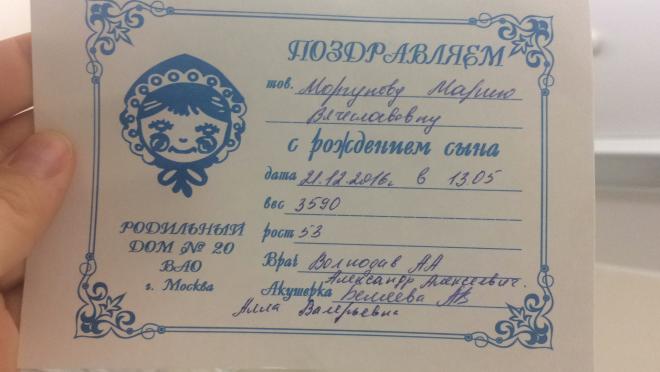 ПОЗДРАВЛЯЕМ
тов. Моргунову Марию
Вячеславовну
с рождением сына
дата 21.12.2016г. в 13.05
вес 3590
рост 53
Врач АА
Александр Алексеевич.
Акушерка Беляева АВ
Алла Валерьевна
РОДИЛЬНЫЙ
ДОМ № 20
ВАО
г. Москва